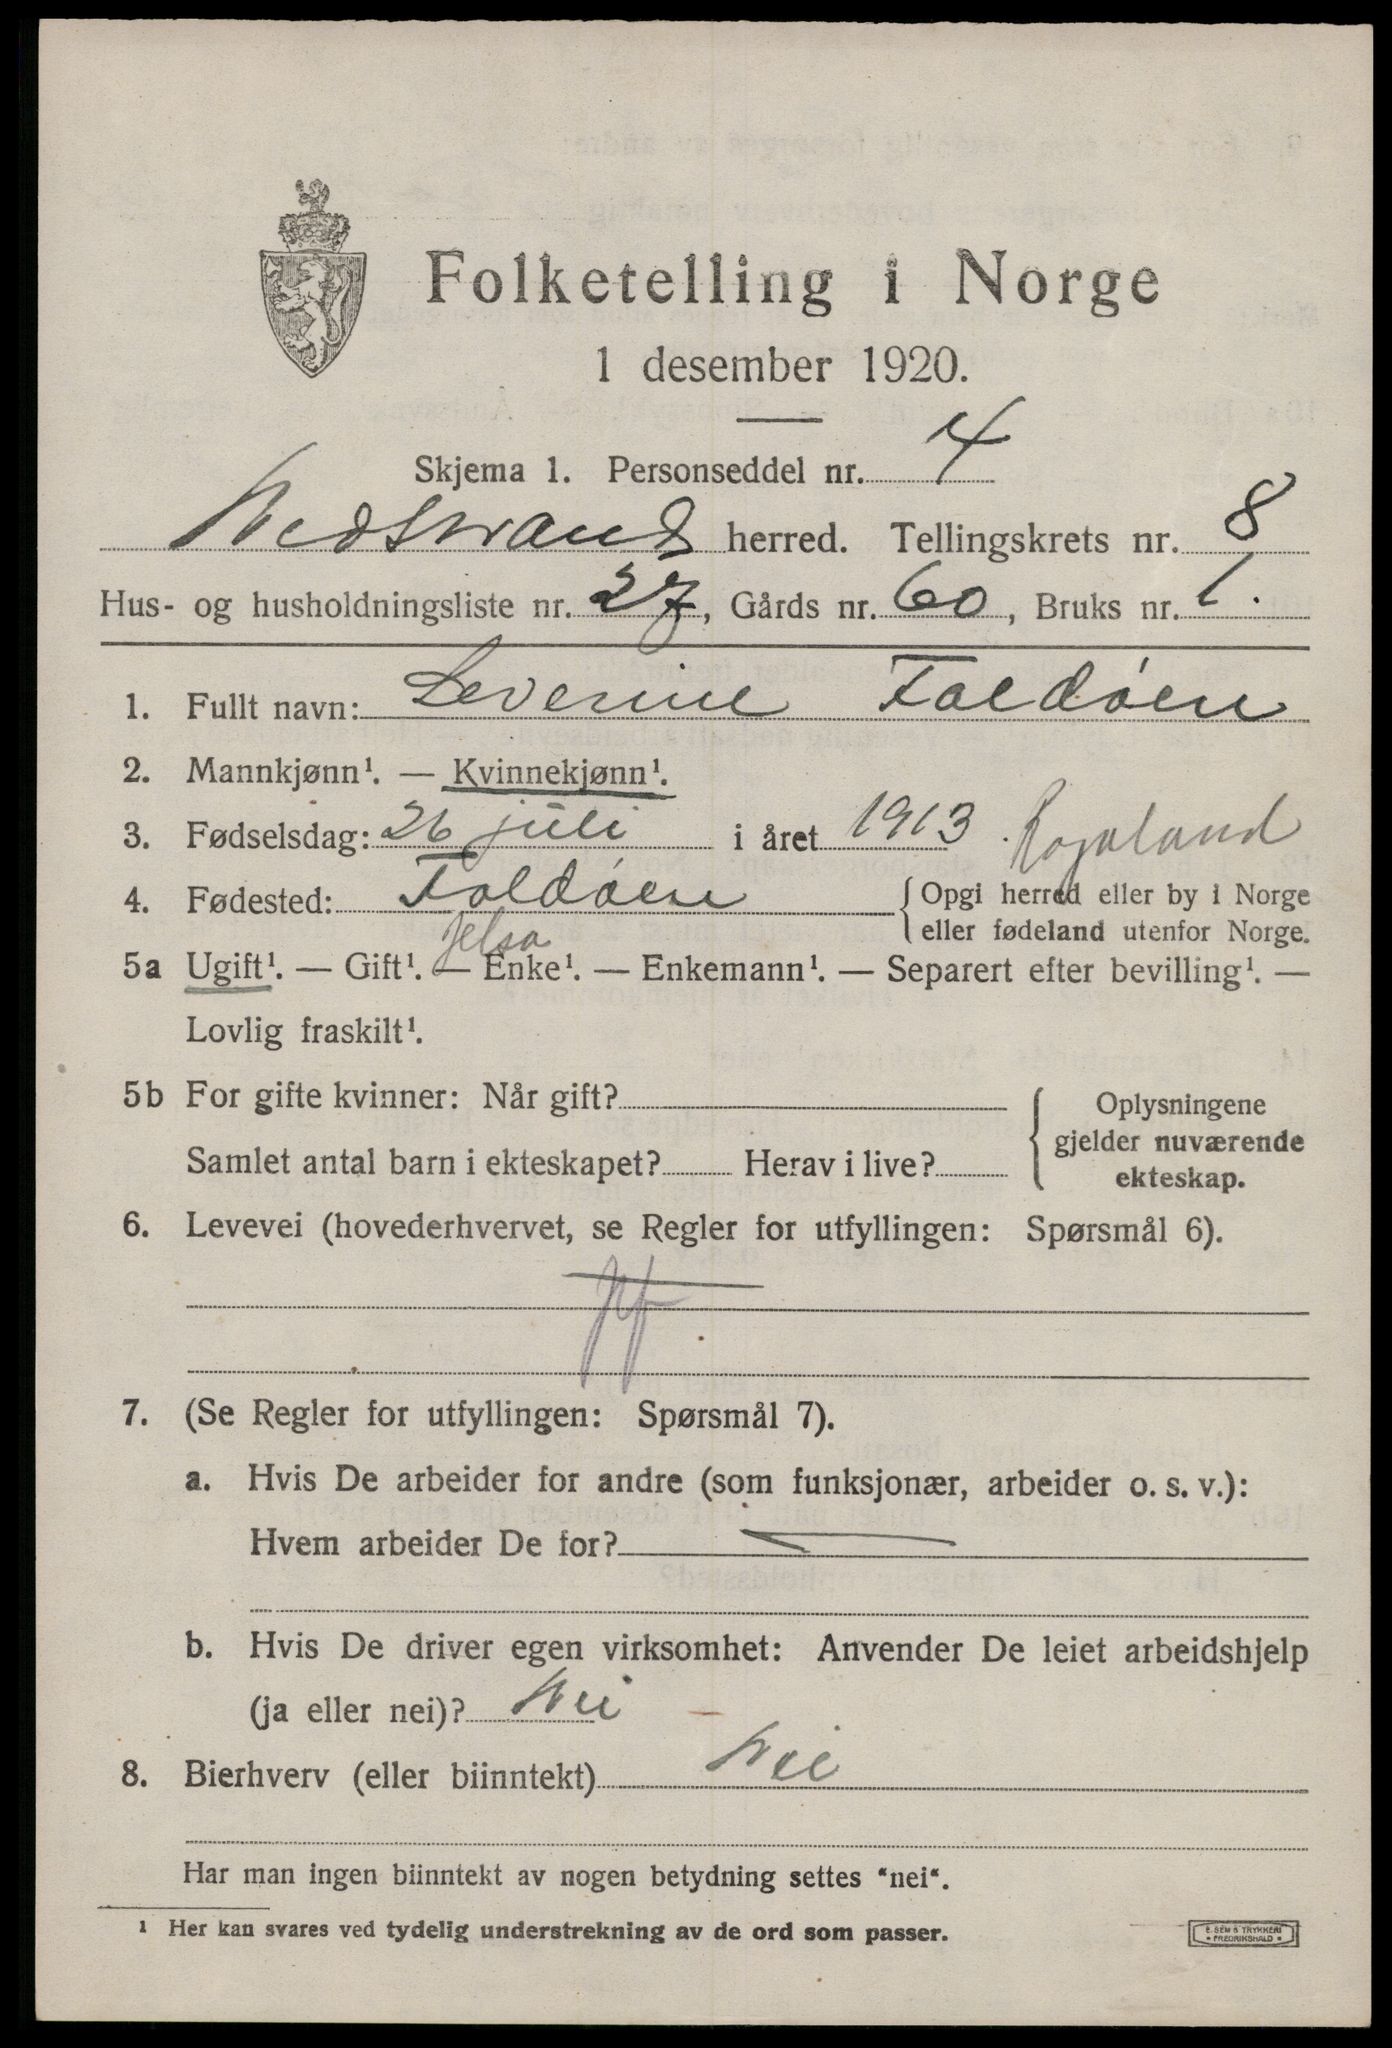 Folketelling i Norge
1 desember 1920.
Skjema 1. Personseddel nr. 4
Nedstrand herred. Tellingskrets nr. 8
Hus- og husholdningsliste nr. 27, Gårds nr. 60, Bruks nr. 1.
1. Fullt navn: Severine Foldøen
2. Mannkjønn¹. — Kvinnekjønn¹.
3. Fødselsdag: 26 juli i året 1913. Rogaland
4. Fødested: Foldøen { Opgi herred eller by i Norge
eller fødeland utenfor Norge.
Jelsa
5a Ugift¹. — Gift¹. — Enke¹. — Enkemann¹. — Separert efter bevilling¹. —
Lovlig fraskilt¹.
5b For gifte kvinner: Når gift? { Oplysningene
gjelder nuværende
Samlet antal barn i ekteskapet? Herav i live?
ekteskap.
6. Levevei (hovederhvervet, se Regler for utfyllingen: Spørsmål 6).
7. (Se Regler for utfyllingen: Spørsmål 7).
a. Hvis De arbeider for andre (som funksjonær, arbeider o. s. v.):
Hvem arbeider De for?
b. Hvis De driver egen virksomhet: Anvender De leiet arbeidshjelp
(ja eller nei)? Nei
8. Bierhverv (eller biinntekt) Nei
Har man ingen biinntekt av nogen betydning settes "nei".
¹ Her kan svares ved tydelig understrekning av de ord som passer.
E. SEM'S TRYKKERI
• FREDRIKSHALD •